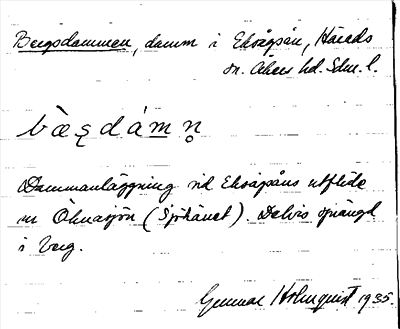 Bergsdammen, damm i Eksågsån, Härads
sn. Åkers hd. Sdm. l.
bæ̀ȩdámn̥
Dammanläggning vid Eksågsåns utflöde
ur Öknasjön (Sjöhänet). Delvis sprängd
i berg.
Gunnar Holmquist 1935.